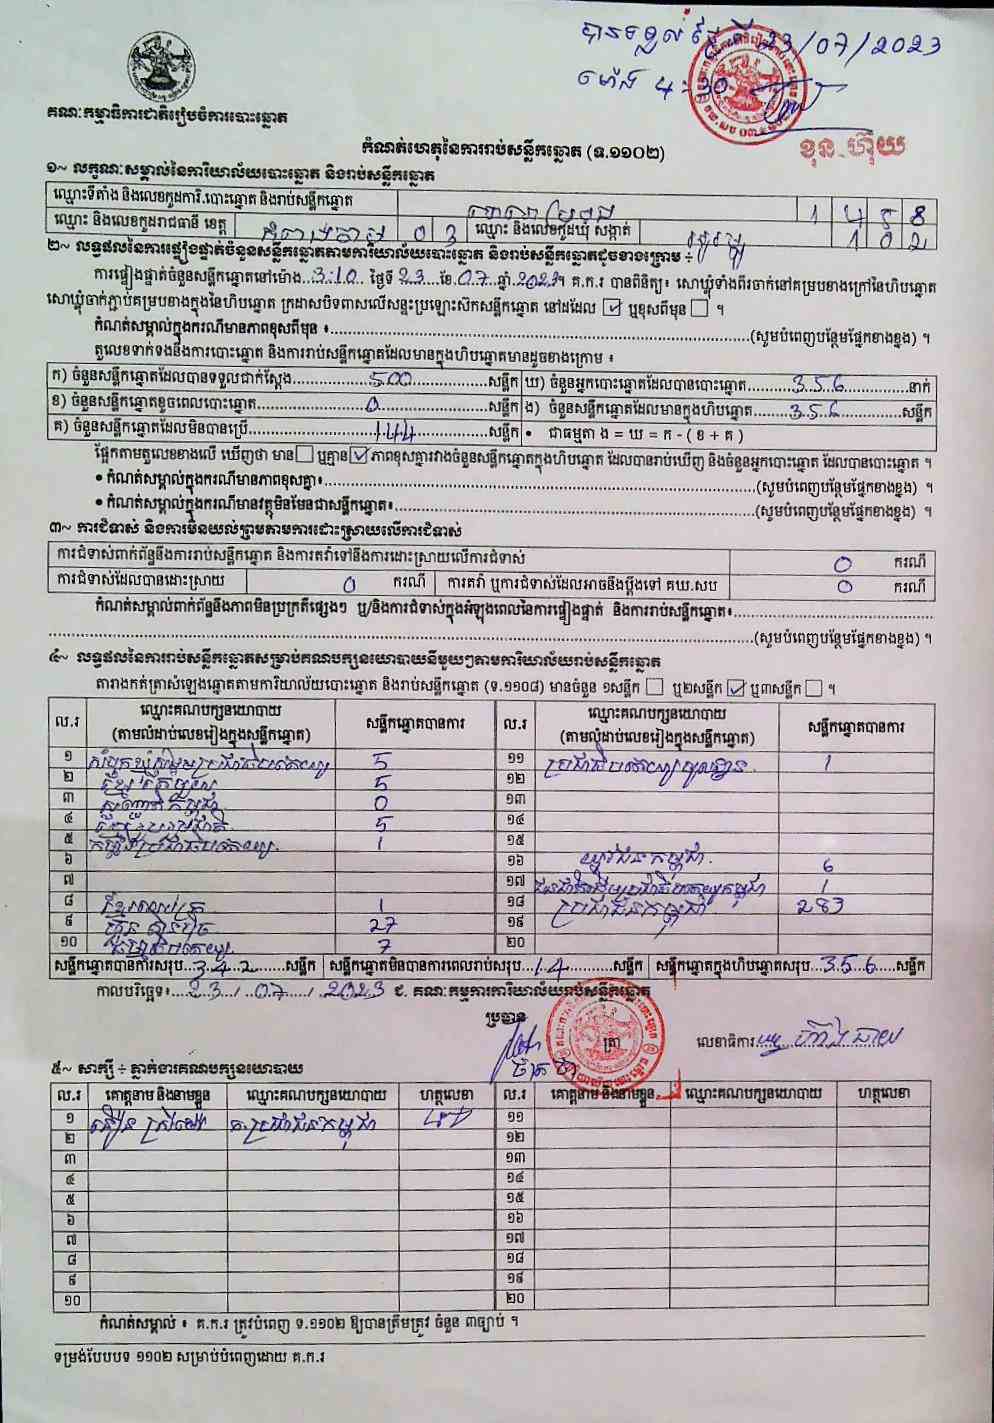 បានទទួល ថ្ងៃទី 23/07/2023
ម៉ោង 4:30
គណៈកម្មាធិការជាតិរៀបចំការបោះឆ្នោត
ខុន ហ៊ុយ
កំណត់ហេតុនៃការរាប់សន្លឹកឆ្នោត (ទ.១១០២)
១~ លក្ខណៈសម្គាល់នៃការិយាល័យបោះឆ្នោត និងរាប់សន្លឹកឆ្នោត
ឈ្មោះទីតាំង និងលេខកូដការិ.បោះឆ្នោត និងរាប់សន្លឹកឆ្នោត
ឈ្មោះ និងលេខកូដរាជធានី ខេត្ត កំពង់ចាម 0 3 ឈ្មោះ និងលេខកូដឃុំ សង្កាត់ 1 0 2
២~ លទ្ធផលនៃការផ្ទៀងផ្ទាត់ចំនួនសន្លឹកឆ្នោតតាមការិយាល័យបោះឆ្នោត និងរាប់សន្លឹកឆ្នោតដូចខាងក្រោម ÷
ការផ្ទៀងផ្ទាត់ចំនួនសន្លឹកឆ្នោតនៅម៉ោង..3:10.. ថ្ងៃទី 23..ខែ.07..ឆ្នាំ.2023។ គ.ក.រ បានពិនិត្យ៖ សោឃ្លុំទាំងពីរចាក់នៅគម្របខាងក្រៅនៃហិបឆ្នោត
សោឃ្លុំចាក់ភ្ជាប់គម្របខាងក្នុងនៃហិបឆ្នោត ក្រដាសបិទពាសលើសន្ទះប្រឡោះស៊កសន្លឹកឆ្នោត នៅដដែល ☑ ឬខុសពីមុន ☐ ។
កំណត់សម្គាល់ក្នុងករណីមានភាពខុសពីមុន ៖..........(សូមបំពេញបន្ថែមផ្នែកខាងខ្នង) ។
តួលេខទាក់ទងនឹងការបោះឆ្នោត និងការរាប់សន្លឹកឆ្នោតដែលមានក្នុងហិបឆ្នោតមានដូចខាងក្រោម ៖
ក) ចំនួនសន្លឹកឆ្នោតដែលបានទទួលជាក់ស្តែង....500....សន្លឹក ឃ) ចំនួនអ្នកបោះឆ្នោតដែលបានបោះឆ្នោត....356....នាក់
ខ) ចំនួនសន្លឹកឆ្នោតខូចពេលបោះឆ្នោត....0....សន្លឹក ង) ចំនួនសន្លឹកឆ្នោតដែលមានក្នុងហិបឆ្នោត....356....សន្លឹក
គ) ចំនួនសន្លឹកឆ្នោតដែលមិនបានប្រើ....144....សន្លឹក • ជាធម្មតា ង = ឃ = ក - ( ខ + គ )
ផ្អែកតាមតួលេខខាងលើ ឃើញថា មាន ☐ ឬគ្មាន ☑ ភាពខុសគ្នារវាងចំនួនសន្លឹកឆ្នោតក្នុងហិបឆ្នោត ដែលបានរាប់ឃើញ និងចំនួនអ្នកបោះឆ្នោត ដែលបានបោះឆ្នោត ។
• កំណត់សម្គាល់ក្នុងករណីមានភាពខុសគ្នា៖..........(សូមបំពេញបន្ថែមផ្នែកខាងខ្នង) ។
• កំណត់សម្គាល់ក្នុងករណីមានវត្ថុមិនមែនជាសន្លឹកឆ្នោត៖..........(សូមបំពេញបន្ថែមផ្នែកខាងខ្នង) ។
៣~ ការជំទាស់ និងការមិនយល់ព្រមតាមការដោះស្រាយលើការជំទាស់
ការជំទាស់ពាក់ព័ន្ធនឹងការរាប់សន្លឹកឆ្នោត និងការតវ៉ាទៅនឹងការដោះស្រាយលើការជំទាស់ 0 ករណី
ការជំទាស់ដែលបានដោះស្រាយ 0 ករណី ការតវ៉ា ឬការជំទាស់ដែលអាចនឹងប្តឹងទៅ គឃ.សប 0 ករណី
កំណត់សម្គាល់ពាក់ព័ន្ធនឹងភាពមិនប្រក្រតីផ្សេងៗ ឬ/និងការជំទាស់ក្នុងអំឡុងពេលនៃការផ្ទៀងផ្ទាត់ និងការរាប់សន្លឹកឆ្នោត៖..........
..........(សូមបំពេញបន្ថែមផ្នែកខាងខ្នង) ។
៤~ លទ្ធផលនៃការរាប់សន្លឹកឆ្នោតសម្រាប់គណបក្សនយោបាយនីមួយៗតាមការិយាល័យរាប់សន្លឹកឆ្នោត
តារាងកត់ត្រាសំឡេងឆ្នោតតាមការិយាល័យបោះឆ្នោត និងរាប់សន្លឹកឆ្នោត (ទ.១១០៨) មានចំនួន ១សន្លឹក ☐ ឬ២សន្លឹក ☑ ឬ៣សន្លឹក ☐ ។
ល.រ ឈ្មោះគណបក្សនយោបាយ (តាមលំដាប់លេខរៀងក្នុងសន្លឹកឆ្នោត) សន្លឹកឆ្នោតបានការ ល.រ ឈ្មោះគណបក្សនយោបាយ (តាមលំដាប់លេខរៀងក្នុងសន្លឹកឆ្នោត) សន្លឹកឆ្នោតបានការ
១ សំបុកឃ្មុំសង្គមប្រជាធិបតេយ្យ 5 ១១ 1
២ 5 ១២
៣ 0 ១៣
៤ ខ្មែររួបរួមជាតិ 5 ១៤
៥ កម្លាំងប្រជាធិបតេយ្យ 1 ១៥
៦ ១៦ យុវជនកម្ពុជា 6
៧ ១៧ ជនជាតិដើមប្រជាធិបតេយ្យកម្ពុជា 1
៨ 1 ១៨ ប្រជាជនកម្ពុជា 283
៩ ហ៊្វុនស៊ិនប៉ិច 27 ១៩
១០ ធម្មាធិបតេយ្យ 7 ២០
សន្លឹកឆ្នោតបានការសរុប..342...សន្លឹក សន្លឹកឆ្នោតមិនបានការពេលរាប់សរុប..14....សន្លឹក សន្លឹកឆ្នោតក្នុងហិបឆ្នោតសរុប..356....សន្លឹក
កាលបរិច្ឆេទ៖...23./.07./.2023 ជ. គណៈកម្មការការិយាល័យរាប់សន្លឹកឆ្នោត
ប្រធាន
ត្រា
លេខាធិការ
៥~ សាក្សី ÷ ភ្នាក់ងារគណបក្សនយោបាយ
ល.រ គោត្តនាម និងនាមខ្លួន ឈ្មោះគណបក្សនយោបាយ ហត្ថលេខា ល.រ គោត្តនាម និងនាមខ្លួន ឈ្មោះគណបក្សនយោបាយ ហត្ថលេខា
១ គ.ប្រជាជនកម្ពុជា ១១
២ ១២
៣ ១៣
៤ ១៤
៥ ១៥
៦ ១៦
៧ ១៧
៨ ១៨
៩ ១៩
១០ ២០
កំណត់សម្គាល់ ៖ គ.ក.រ ត្រូវបំពេញ ទ.១១០២ ឱ្យបានត្រឹមត្រូវ ចំនួន ៣ច្បាប់ ។
ទម្រង់បែបបទ ១១០២ សម្រាប់បំពេញដោយ គ.ក.រ